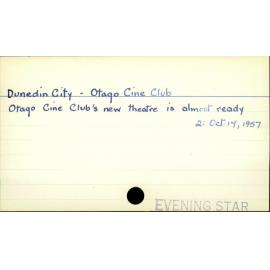 Dunedin City - Otago Cine Club
Otago Cine Club's new theatre is almost ready
2: Oct 14, 1957
EVENING STAR